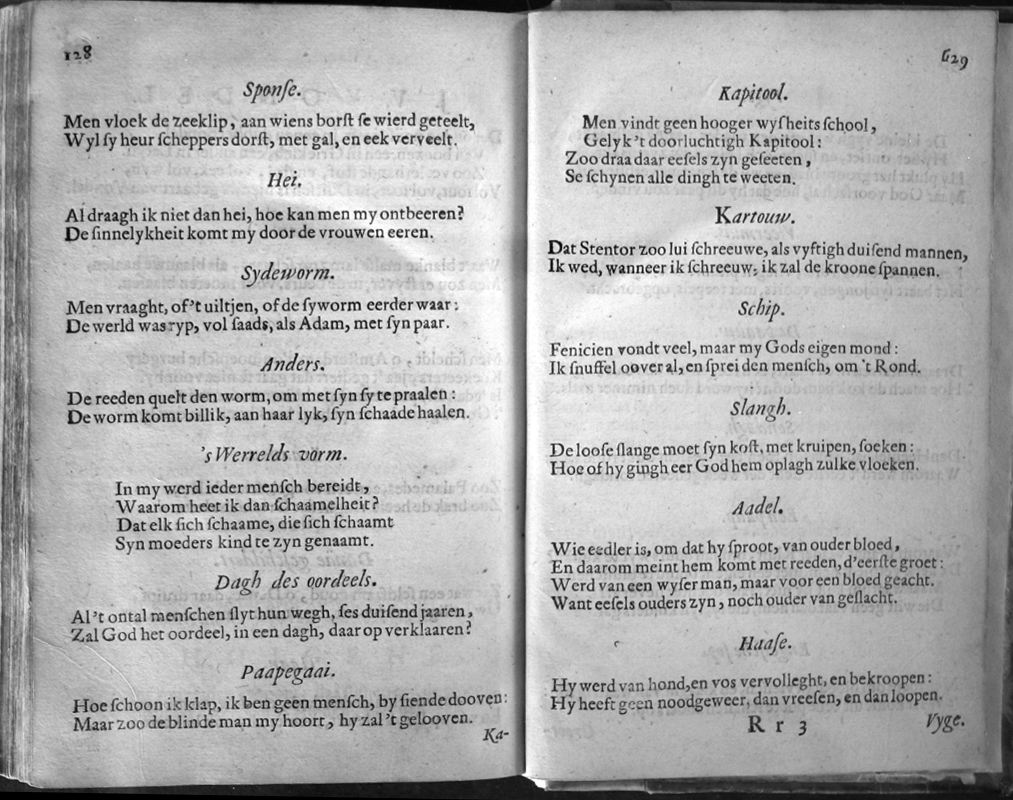 128
Sponſe.
Men vloek de zeeklip, aan wiens borſt ſe wierd geteelt,
Wyl ſy heur ſcheppers dorſt, met gal, en eek verveelt.
Hei.
Al draagh ik niet dan hei, hoe kan men my ontbeeren?
De ſinnelykheit komt my door de vrouwen eeren.
Sydeworm.
Men vraaght, of 't uiltjen, of de ſyworm eerder waar:
De werld was ryp, vol ſaads, als Adam, met ſyn paar.
Anders.
De reeden quelt den worm, om met ſyn ſy te praalen:
De worm komt billik, aan haar lyk, ſyn ſchaade haalen.
's Werrelds vorm.
In my werd ieder menſch bereidt,
Waarom heet ik dan ſchaamelheit?
Dat elk ſich ſchaame, die ſich ſchaamt
Syn moeders kind te zyn genaamt.
Dagh des oordeels.
Al 't ontal menſchen ſlyt hun wegh, ſes duiſend jaaren,
Zal God het oordeel, in een dagh, daar op verklaaren?
Paapegaai.
Hoe ſchoon ik klap, ik ben geen menſch, by ſiende dooven:
Maar zoo de blinde man my hoort, hy zal 't gelooven.
Ka-
629
Kapitool.
Men vindt geen hooger wyſheits ſchool,
Gelyk 't doorluchtigh Kapitool:
Zoo draa daar eeſels zyn geſeeten,
Se ſchynen alle dingh te weeten.
Kartouw.
Dat Stentor zoo lui ſchreeuwe, als vyftigh duiſend mannen,
Ik wed, wanneer ik ſchreeuw, ik zal de kroone ſpannen.
Schip.
Fenicien vondt veel, maar my Gods eigen mond:
Ik ſnuffel oover al, en ſprei den menſch, om 't Rond.
Slangh.
De looſe ſlange moet ſyn koſt, met kruipen, ſoeken:
Hoe of hy gingh eer God hem oplagh zulke vloeken.
Aadel.
Wie eedler is, om dat hy ſproot, van ouder bloed,
En daarom meint hem komt met reeden, d'eerſte groet:
Werd van een wyſer man, maar voor een bloed geacht.
Want eeſels ouders zyn, noch ouder van geſlacht.
Haaſe.
Hy werd van hond, en vos vervolleght, en bekroopen:
Hy heeft geen noodgeweer, dan vreeſen, en dan loopen.
R r 3
Vyge.